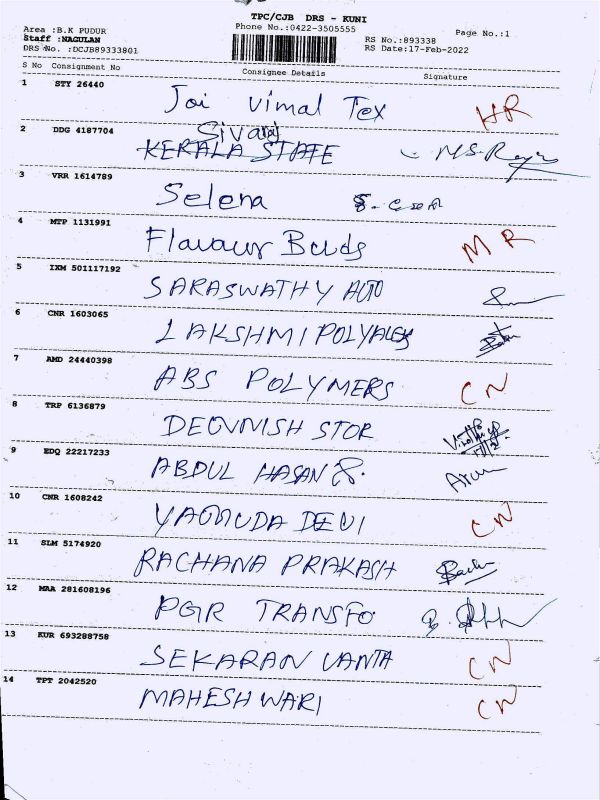 TPC/CJB DRS - KUNI
Area :B.K PUDUR Phone No.:0422-3505555 Page No.:1
Staff :NAGULAN RS No.:893338
DRS No. :DCJB89333801 RS Date:17-Feb-2022
S No Consignment No Consignee Details Signature
1 STY 26440 Jai Vimal Tex HR
Sivaraj
2 DDG 4187704 KERALA STATE
3 VRR 1614789 Selena
4 MTP 1131991 Flavour Buds MR
5 IXM 501117192 SARASWATHY AUTO
6 CNR 1603065 LAKSHMI
7 AMD 24440398 ABS POLYMERS CN
8 TRP 6136879 STOR
9 EDQ 22217233 ABDUL HASAN S. Arun
10 CNR 1608242 YAMUDA DEVI CN
11 SLM 5174920 RACHANA PRAKASH
12 MAA 281608196 PGR TRANSFO
13 KUR 693288758 SEKARAN VANTA CN
14 TPT 2042520 MAHESHWARI CN